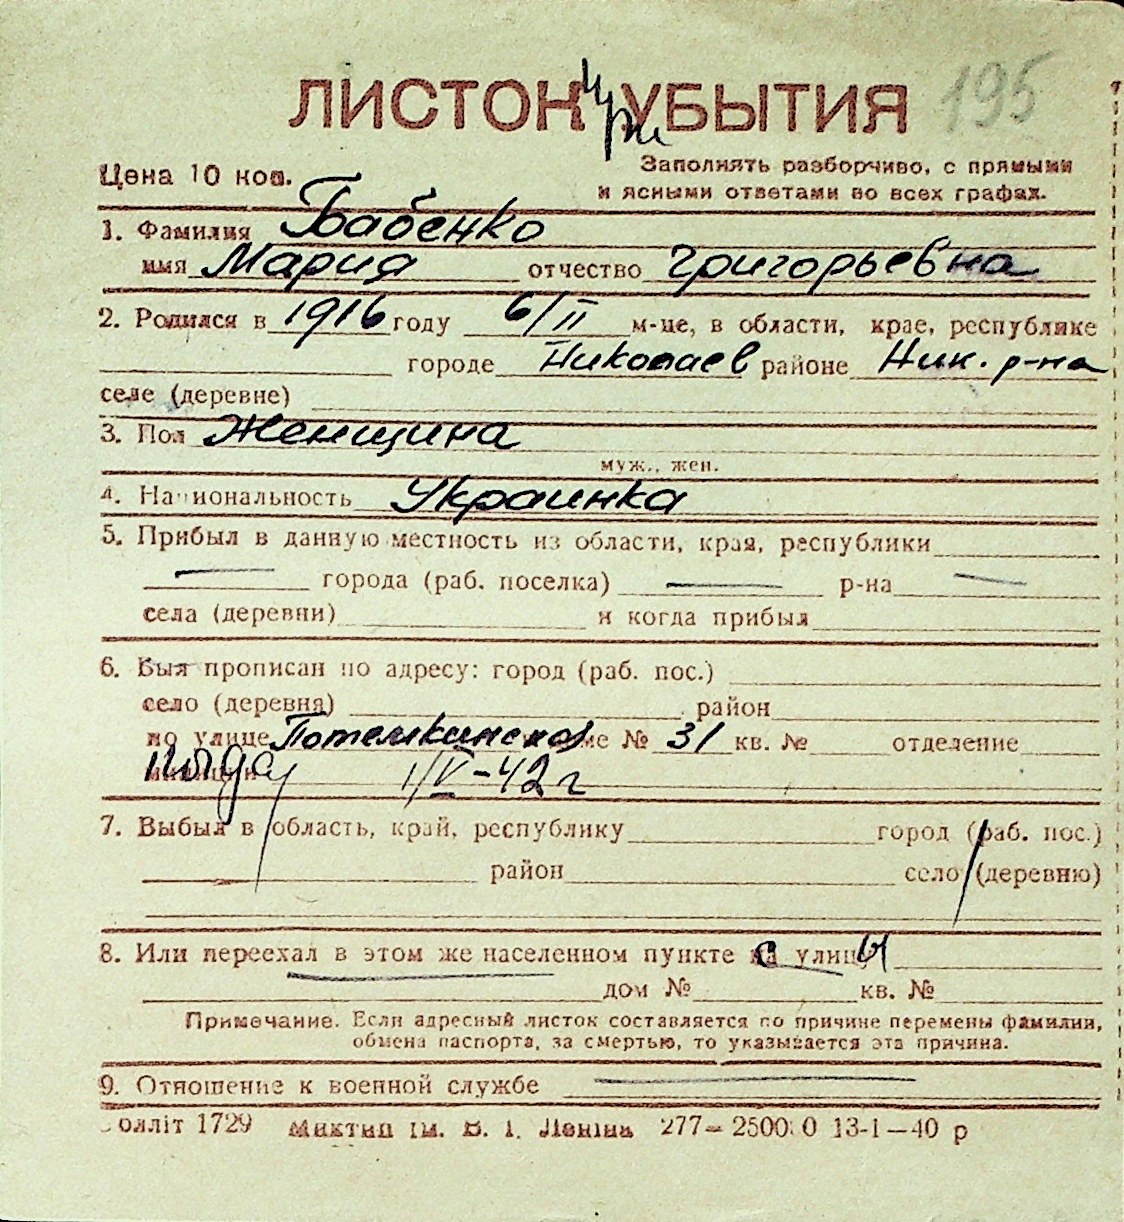 ЛИСТОК УБЫТИЯ 195
при
Цена 10 коп.
Заполнять разборчиво, с прямыми
и ясными ответами во всех графах.
1. Фамилия Бабенко
имя Мария отчество Григорьевна
2. Родился в 1916 году 6/II м-це, в области, крае, республике
городе Николаев районе Ник. р-на
селе (деревне)
3. Пол Женщина
муж., жен.
4. Национальность Украинка
5. Прибыл в данную местность из области, края, республики
города (раб. поселка) р-на
села (деревни) и когда прибыл
6. Был прописан по адресу: город (раб. пос.)
село (деревня) район
по улице Потемкинской № 31 кв. № отделение
милиции 1/V-42 г
7. Выбыл в область, край, республику город (раб. пос.)
район село (деревню)
8. Или переехал в этом же населенном пункте с улицы
дом № кв. №
Примечание. Если адресный листок составляется по причине перемены фамилии,
обмена паспорта, за смертью, то указывается эта причина.
9. Отношение к военной службе
олліт 1729 Миктип ім. В. І. Леніна 277—2500 0 13-I—40 р